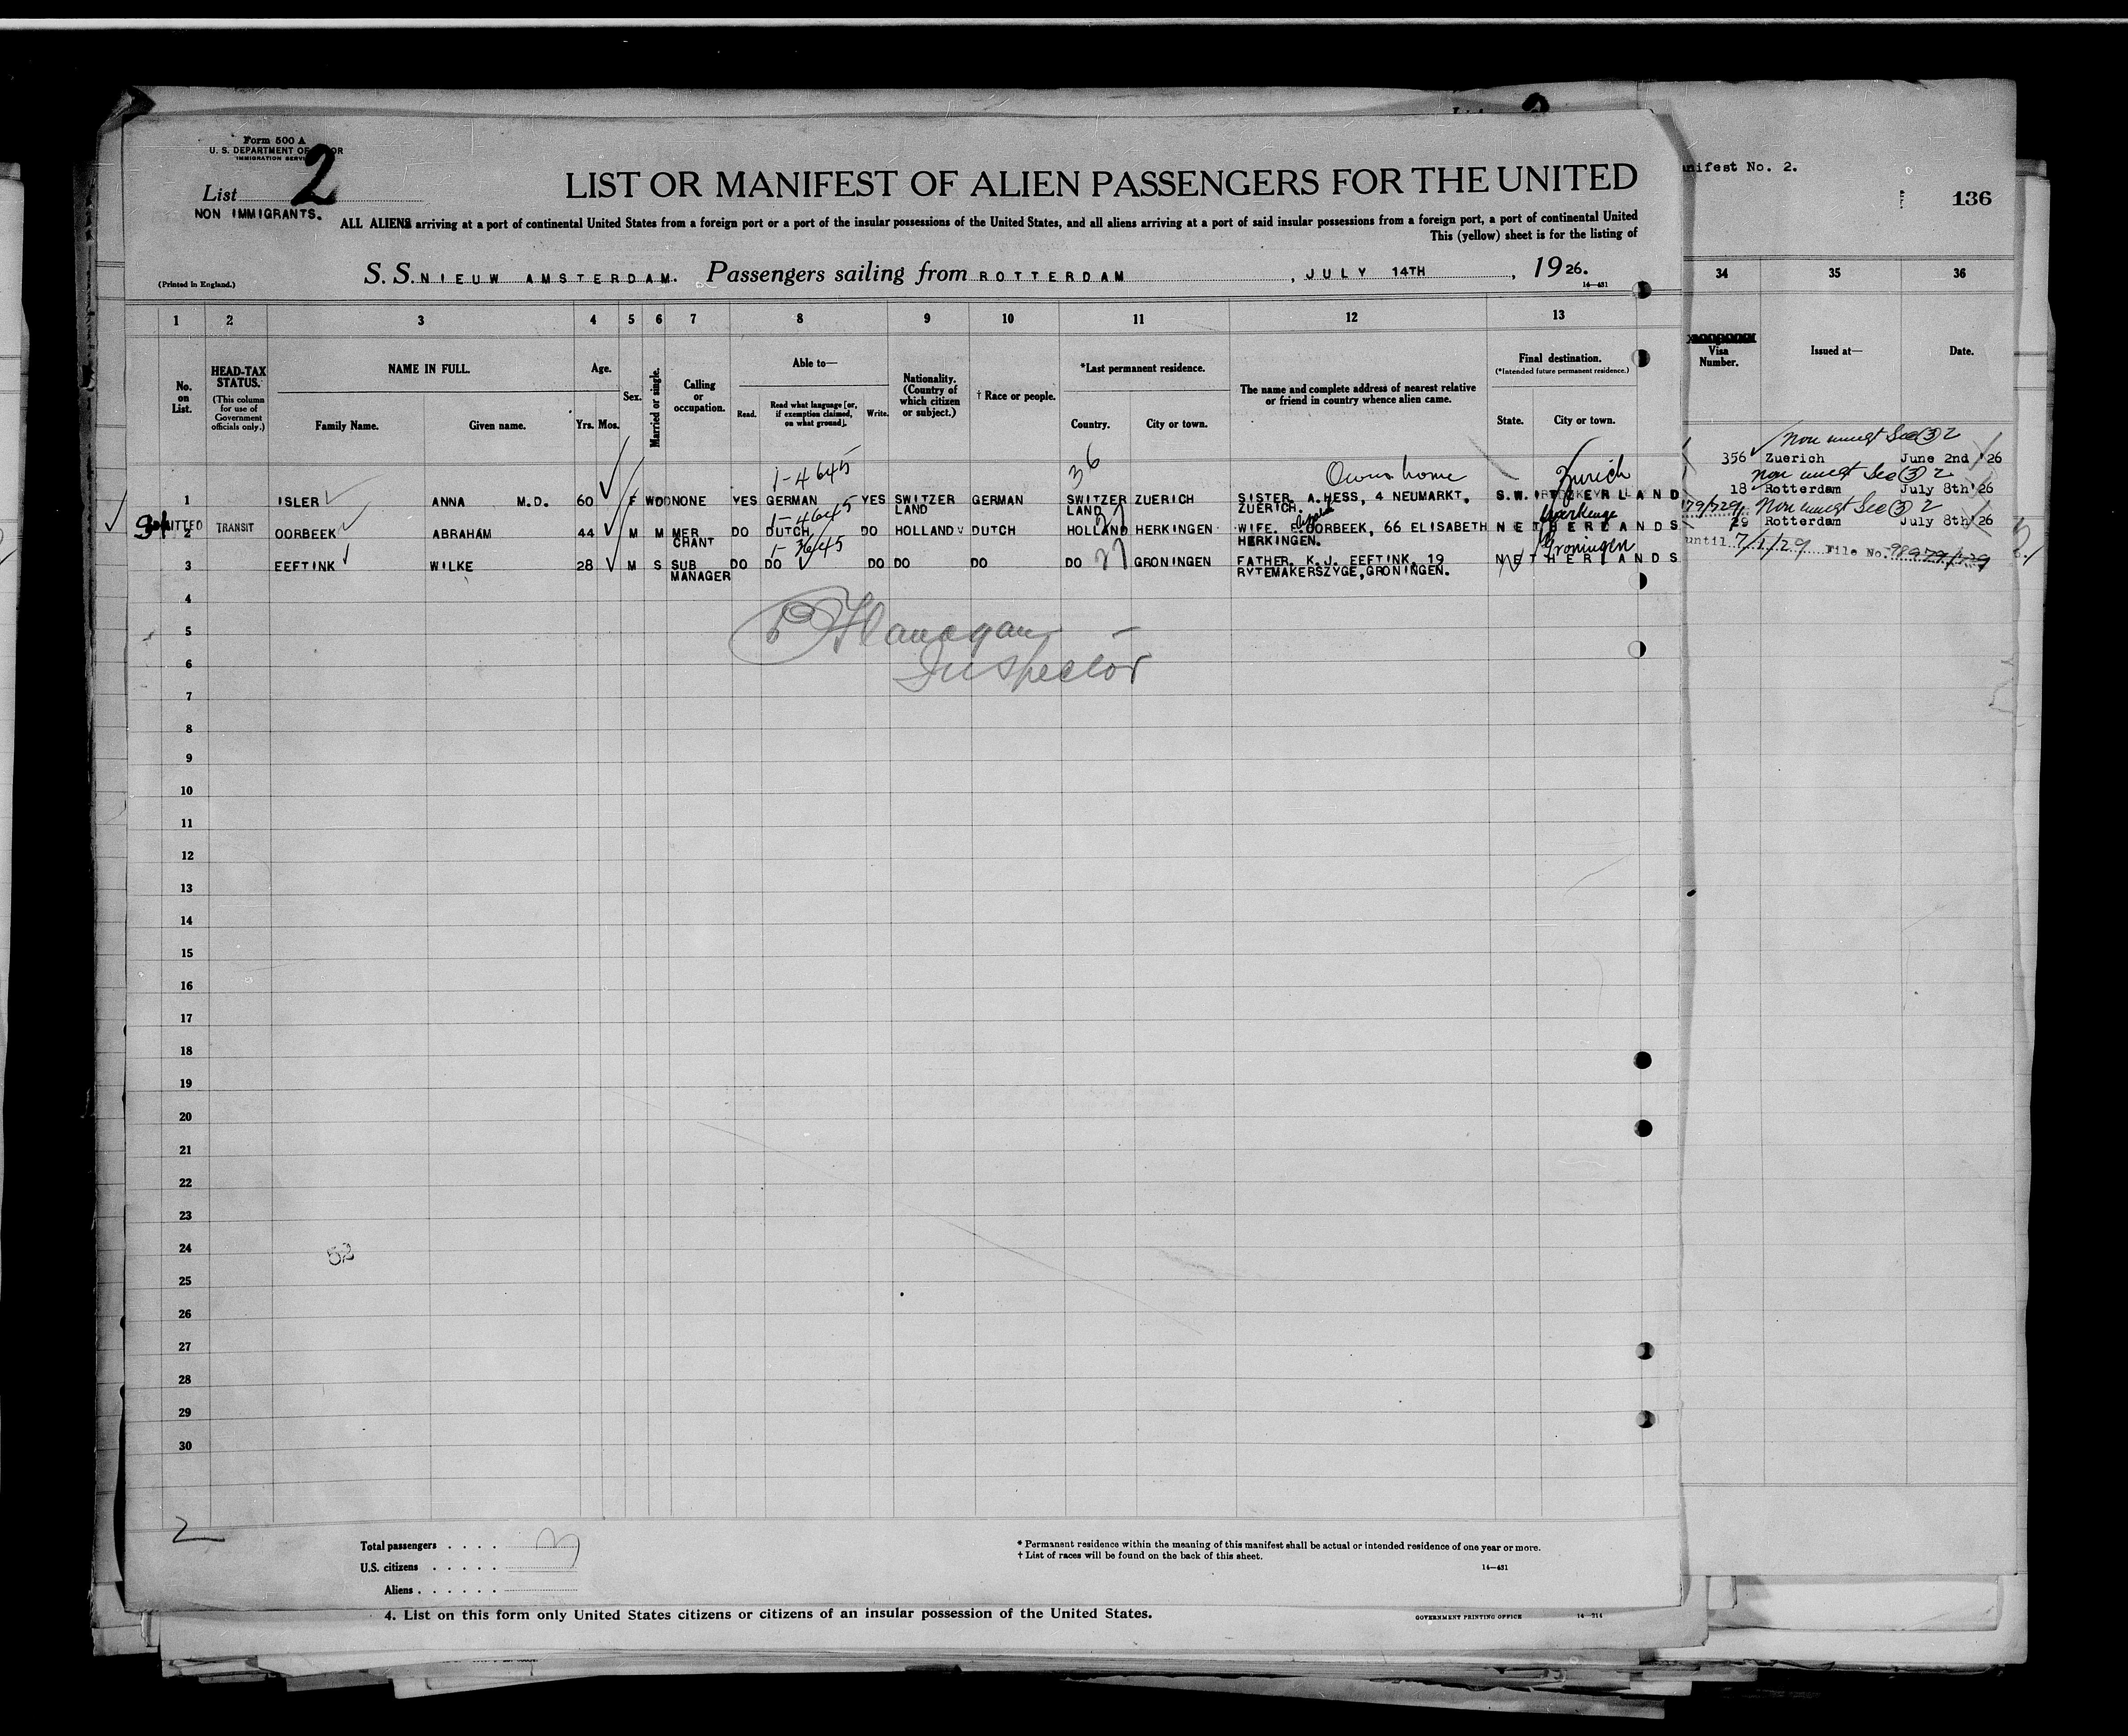 Form 500 A
U. S. DEPARTMENT OF
IMMIGRATION SERVI
List 2
NON IMMIGRANTS.
LIST OR MANIFEST OF ALIEN PASSENGERS FOR THE UNITED
ALL ALIENS arriving at a port of continental United States from a foreign port or a port of the insular possessions of the United States, and all aliens arriving at a port of said insular possessions from a foreign port, a port of continental United
This (yellow) sheet is for the listing of
(Printed in England.)
S. S. NIEUW AMSTERDAM. Passengers sailing from ROTTERDAM, JULY 14TH, 1926.
14—431
nifest No. 2.
136
1 2 3 4 5 6 7 8 9 10 11 12 13 34 35 36
No. on List.
HEAD-TAX STATUS.
(This column for use of Government officials only.)
NAME IN FULL.
Family Name. Given name.
Age.
Yrs. Mos.
Sex.
Married or single.
Calling or occupation.
Able to—
Read. Read what language [or, if exemption claimed, on what ground]. Write.
Nationality. (Country of which citizen or subject.)
† Race or people.
*Last permanent residence.
Country. City or town.
The name and complete address of nearest relative or friend in country whence alien came.
Final destination.
(*Intended future permanent residence.)
State. City or town.
Visa Number.
Issued at—
Date.
1-4645 36 Owns home Zurich
1 ISLER ANNA M.D. 60 F WOD NONE YES GERMAN YES SWITZER LAND GERMAN SWITZER LAND ZUERICH SISTER. A.HESS, 4 NEUMARKT, ZUERICH. SWITZERLAND
356 Zuerich June 2nd '26
1-4645
MITTED TRANSIT
2 OORBEEK ABRAHAM 44 M M MER CHANT DO DUTCH DO HOLLAND DUTCH HOLLAND HERKINGEN WIFE. OORBEEK, 66 ELISABETH HERKINGEN. NETHERLANDS
18 Rotterdam July 8th '26
1-3645 27 Groningen
3 EEFTINK WILKE 28 M S SUB MANAGER DO DO DO DO DO DO GRONINGEN FATHER. K.J. EEFTINK, 19 RYTEMAKERSZYGE, GRONINGEN. NETHERLANDS
29 Rotterdam July 8th '26
until 7/1/29 File No.
4
5
6
P Flanagan
Inspector
7
8
9
10
11
12
13
14
15
16
17
18
19
20
21
22
23
24
52
25
26
27
28
29
30
2
Total passengers . . . . 3
U.S. citizens . . . . .
Aliens . . . . . .
* Permanent residence within the meaning of this manifest shall be actual or intended residence of one year or more.
† List of races will be found on the back of this sheet.
14—431
4. List on this form only United States citizens or citizens of an insular possession of the United States.
GOVERNMENT PRINTING OFFICE
14—214